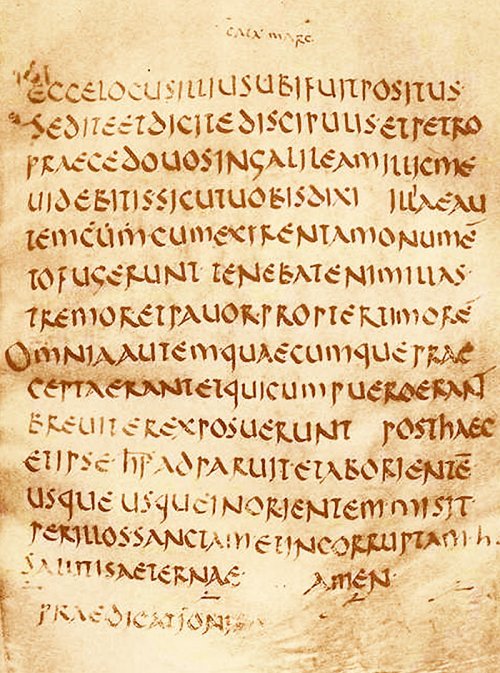 CATA MARC.
ECCELOCUSILLIUSUBIFUITPOSITUS
SEDITEETDICITEDISCIPULISETPETRO
PRAECEDOUOSINGALILEAMILLICME
UIDEBITISSICUTUOBISDIXI ILLAEAU
TEMCUMCUMEXIRENTAMONUMĒ
TOFUGERUNT TENEBATENIMILLAS
TREMORETPAUORPROPTERTIMORĒ
OMNIAAUTEMQUAECUMQUEPRAE
CEPTAERANTETQUICUMPUEROERANT
BREUITEREXPOSUERUNT POSTHAEC
ETIPSE HIS ADPARUITETABORIENTĒ
USQUE USQUEINORIENTEM MISIT
PERILLOSSANCTAMETINCORRUPTAM H·
SALUTISAETERNAE AMEN
PRAEDICATIONIS